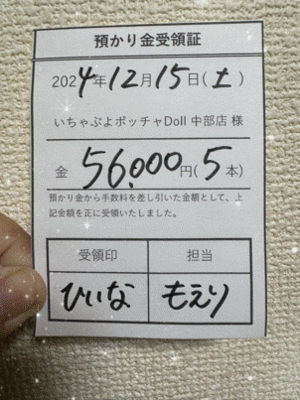 預かり金受領証
2024年12月15日(土)
いちゃぷよポッチャDoll 中部店 様
金 56,000円(5本)
預かり金から手数料を差し引いた金額として、上
記金額を正に受領いたしました。
受領印 担当
ひいな もえり